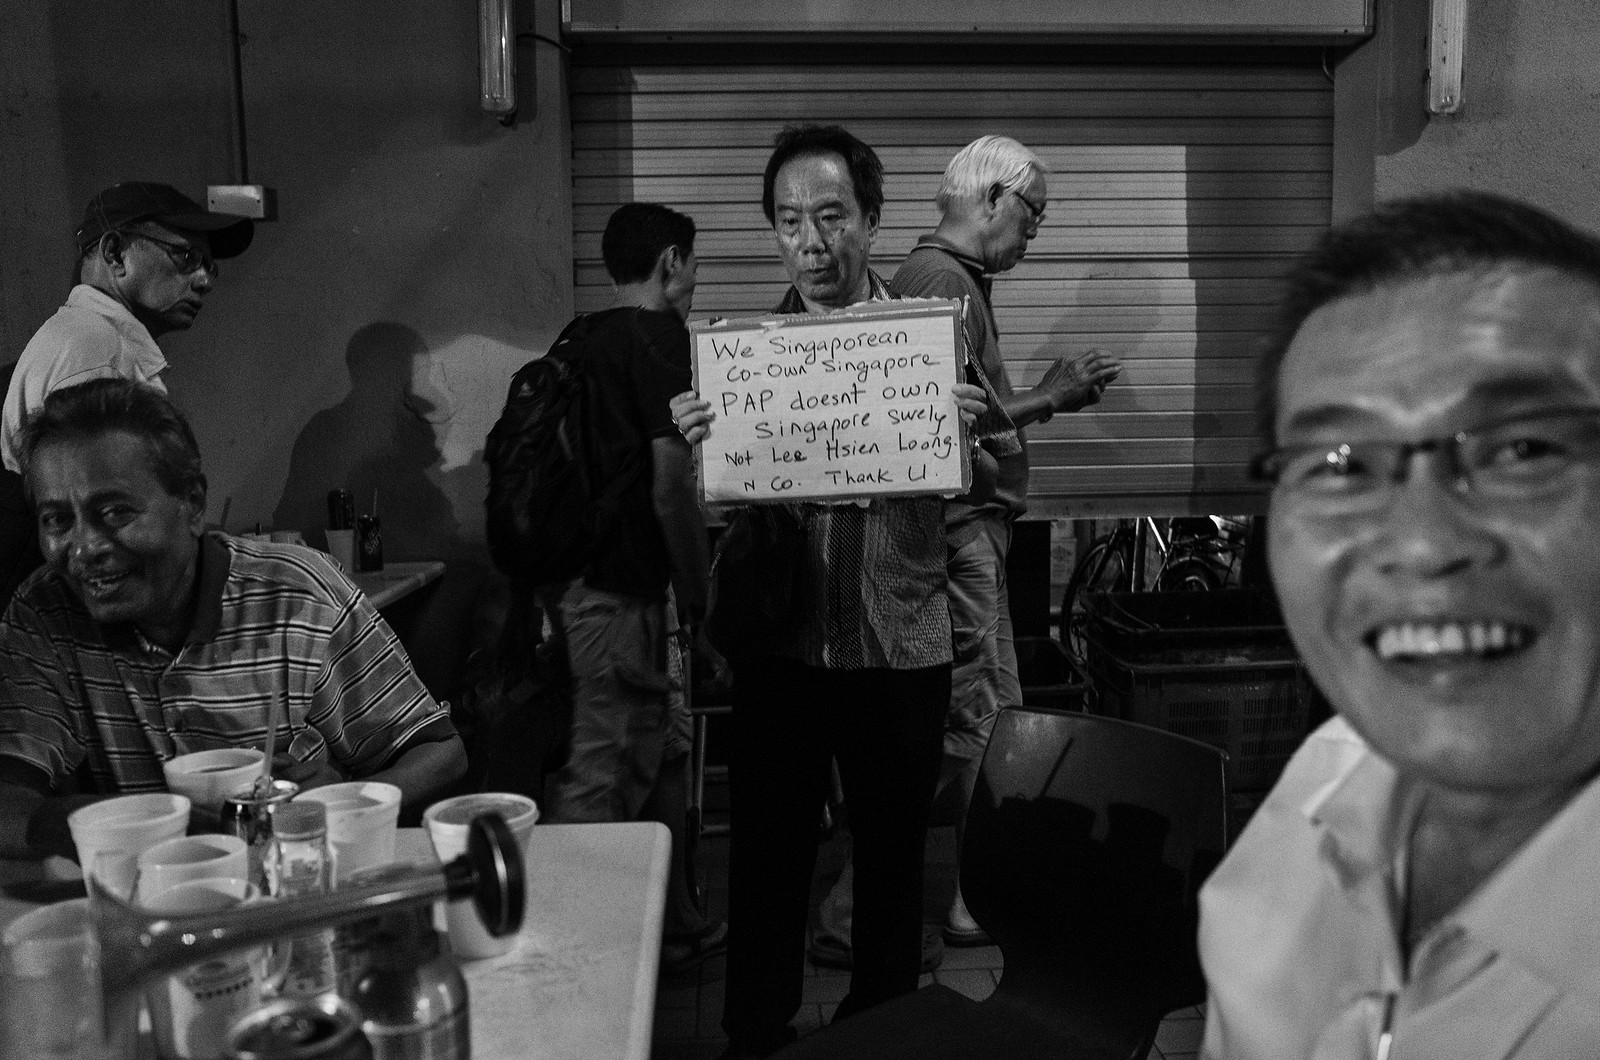 We Singaporean
Co-Own Singapore
PAP doesnt own
Singapore Swely
Not Lee Hsien Loong.
N Co. Thank U.